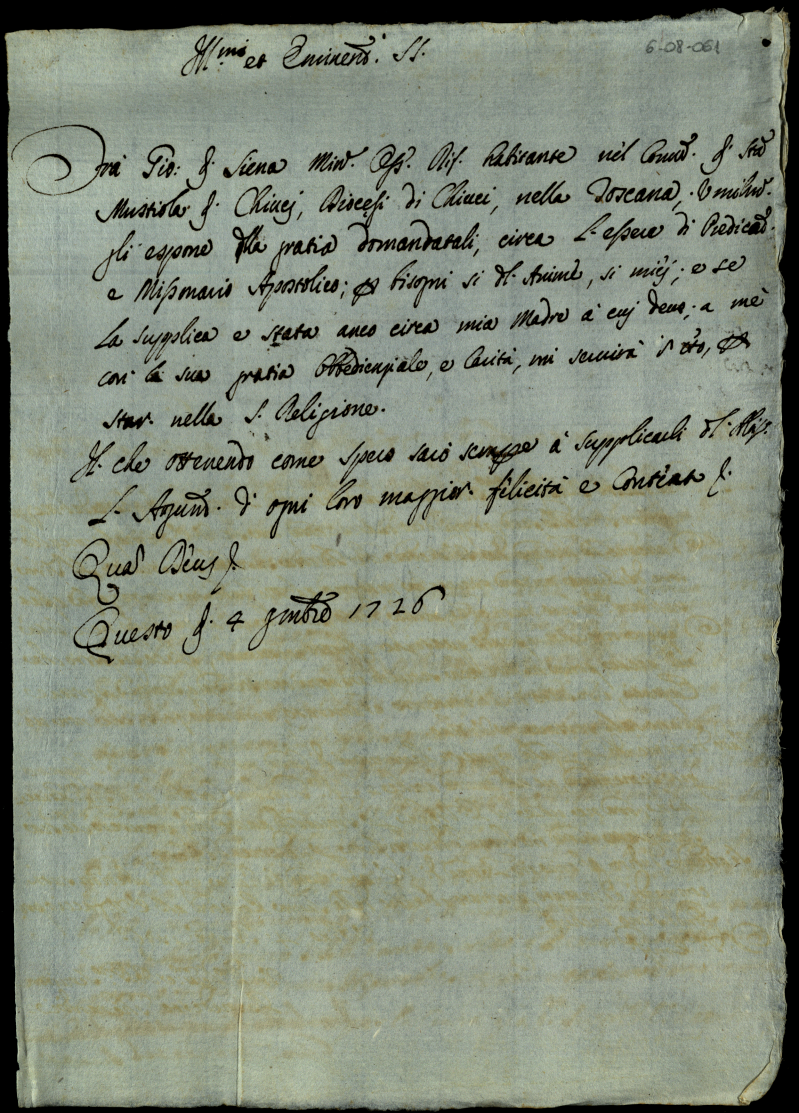 6-08-061
Ill.mi et Eminend. SS.
Frà Gio: di Siena Min. Oss. Rif. habitante nel Conv. di Sta
Mustiola di Chiucj, Diocesi di Chiuci, nella Toscana, Umilm.
gli espone della gratia domandatali, circa L'essere di Predicat.
e Missionario Apostolico; bisogni si dl' Anime, si miej; e se
La supplica e stata anco circa mia Madre à cuj devo; a me
così la sua gratia Obbedienziale, e Carità, mi servirà
star. nella S. Religione.
Il che ottenendo come spero sarò sempre à supplicarli dl'
L' Aqum. d' ogni loro maggior. felicità e Content.
Qua Deus
Questo di 4 gmbre 1726